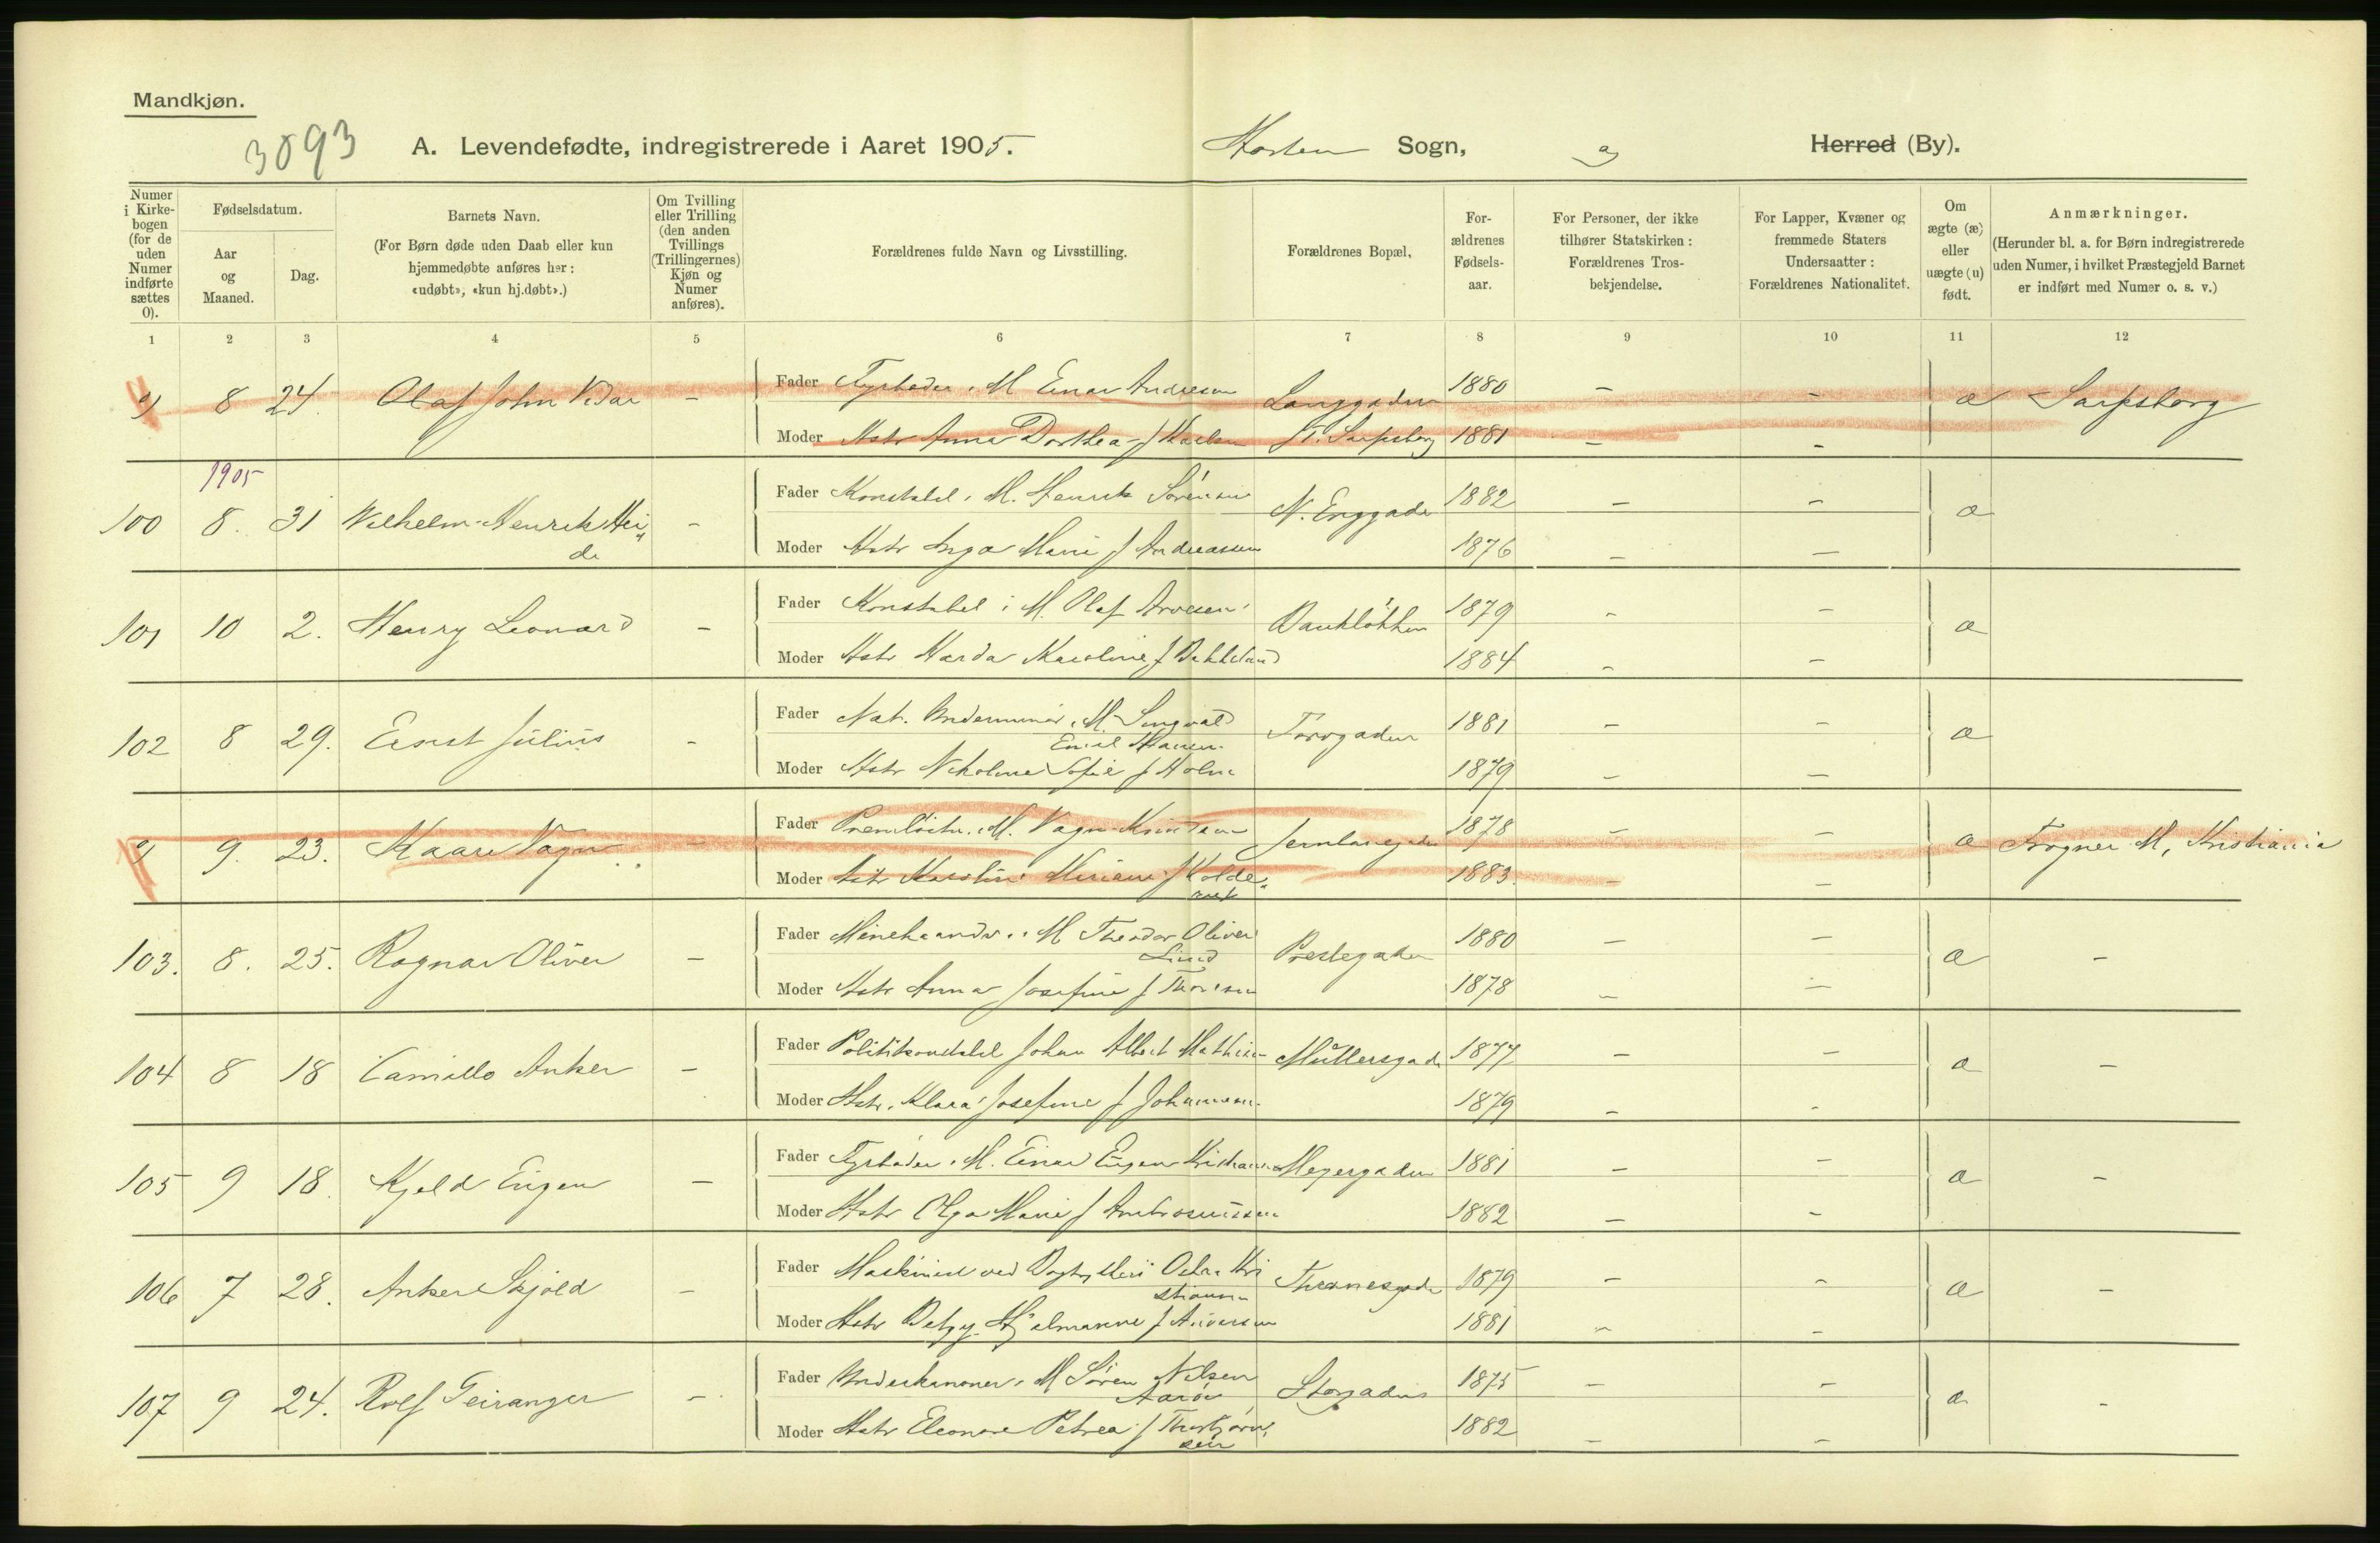 Mandkjøn.
3093
A. Levendefødte, indregistrerede i Aaret 1905. Horten Sogn, Herred (By).
Numer i Kirkebogen (for de uden Numer indførte sættes 0).
Fødselsdatum.
Aar og Maaned.
Dag.
Barnets Navn.
(For Børn døde uden Daab eller kun hjemmedøbte anføres her: «udøbt», «kun hj.døbt».)
Om Tvilling eller Trilling (den anden Tvillings (Trillingernes) Kjøn og Numer anføres).
Forældrenes fulde Navn og Livsstilling.
Forældrenes Bopæl,
Forældrenes Fødselsaar.
For Personer, der ikke tilhører Statskirken: Forældrenes Trosbekjendelse.
For Lapper, Kvæner og fremmede Staters Undersaatter: Forældrenes Nationalitet.
Om ægte (æ) eller uægte (u) født.
Anmærkninger.
(Herunder bl. a. for Børn indregistrerede uden Numer, i hvilket Præstegjeld Barnet er indført med Numer o. s. v.)
1 2 3 4 5 6 7 8 9 10 11 12
8 24. Olaf John Vidar - Fader Fyrbøder i M. Einar Andresen Langgaden 1880 - - æ Sarpsborg
Moder Hstr Anna Dorthea f Karlsen f. T. Sarpsborg 1881 - -
1905
100 8. 31 Vilhelm Henrik Hei„ - Fader Konstabel i M. Henrik Sørensen N. Enggade 1882 - - æ
de
Moder Hstr Inga Marie f Andreassen 1876 - -
101 10 2. Henry Leonard - Fader Konstabel i M. Olaf Arvesen Bankløkken 1879 - - æ
Moder Hstr Harda Karoline f Bakkeland 1884 - -
102 8 29. Ernst Julius - Fader Nat. Underminør i M. Singvald Torvgaden 1881 - - æ
Emil Hansen
Moder Hstr Nikoline Sofie f Holm 1879 - -
9. 23. Kaare Vagn - Fader Premløitn. i M. Vagn Knudsen Jernbanegaden 1878 - - æ Frogner M, Kristiania
Moder Hstr Karoline Mariane f Kolde„ 1883. - -
103. 8. 25. Ragnar Oliver - Fader Minehaandv. i M Theodor Oliver Prestegaden 1880 - - æ -
Lund
Moder Hstr Anna Josefine f Thoresen 1878 - -
104 8 18 Camillo Anker - Fader Politikonstabel Johan Albert Mathisen Müllersgade 1877 - - æ -
Moder Hstr. Klara Josefine f Johannesen. 1879 - -
105 9 18. Kjeld Eugen - Fader Fyrbøder i M. Einar Eugen Kristiansen Meyergaden 1881 - - æ -
Moder Hstr Olga Marie f Ambrosiussen 1882 - -
106 7 28. Anker Skjold - Fader Maskinist ved Bogtrykkeri Oskar Kri Thranesgade 1879 - - æ -
stiansen
Moder Hstr Betzy Hjelmanne f Amundsen 1881 - -
107 9 24. Rolf Geiranger - Fader Underkanoner i M Søren Nilsen Storgaden 1875 - - æ -
Aarøe
Moder Hstr Eleonore Petrea f Thorbjørn„ 1882 - -
sen